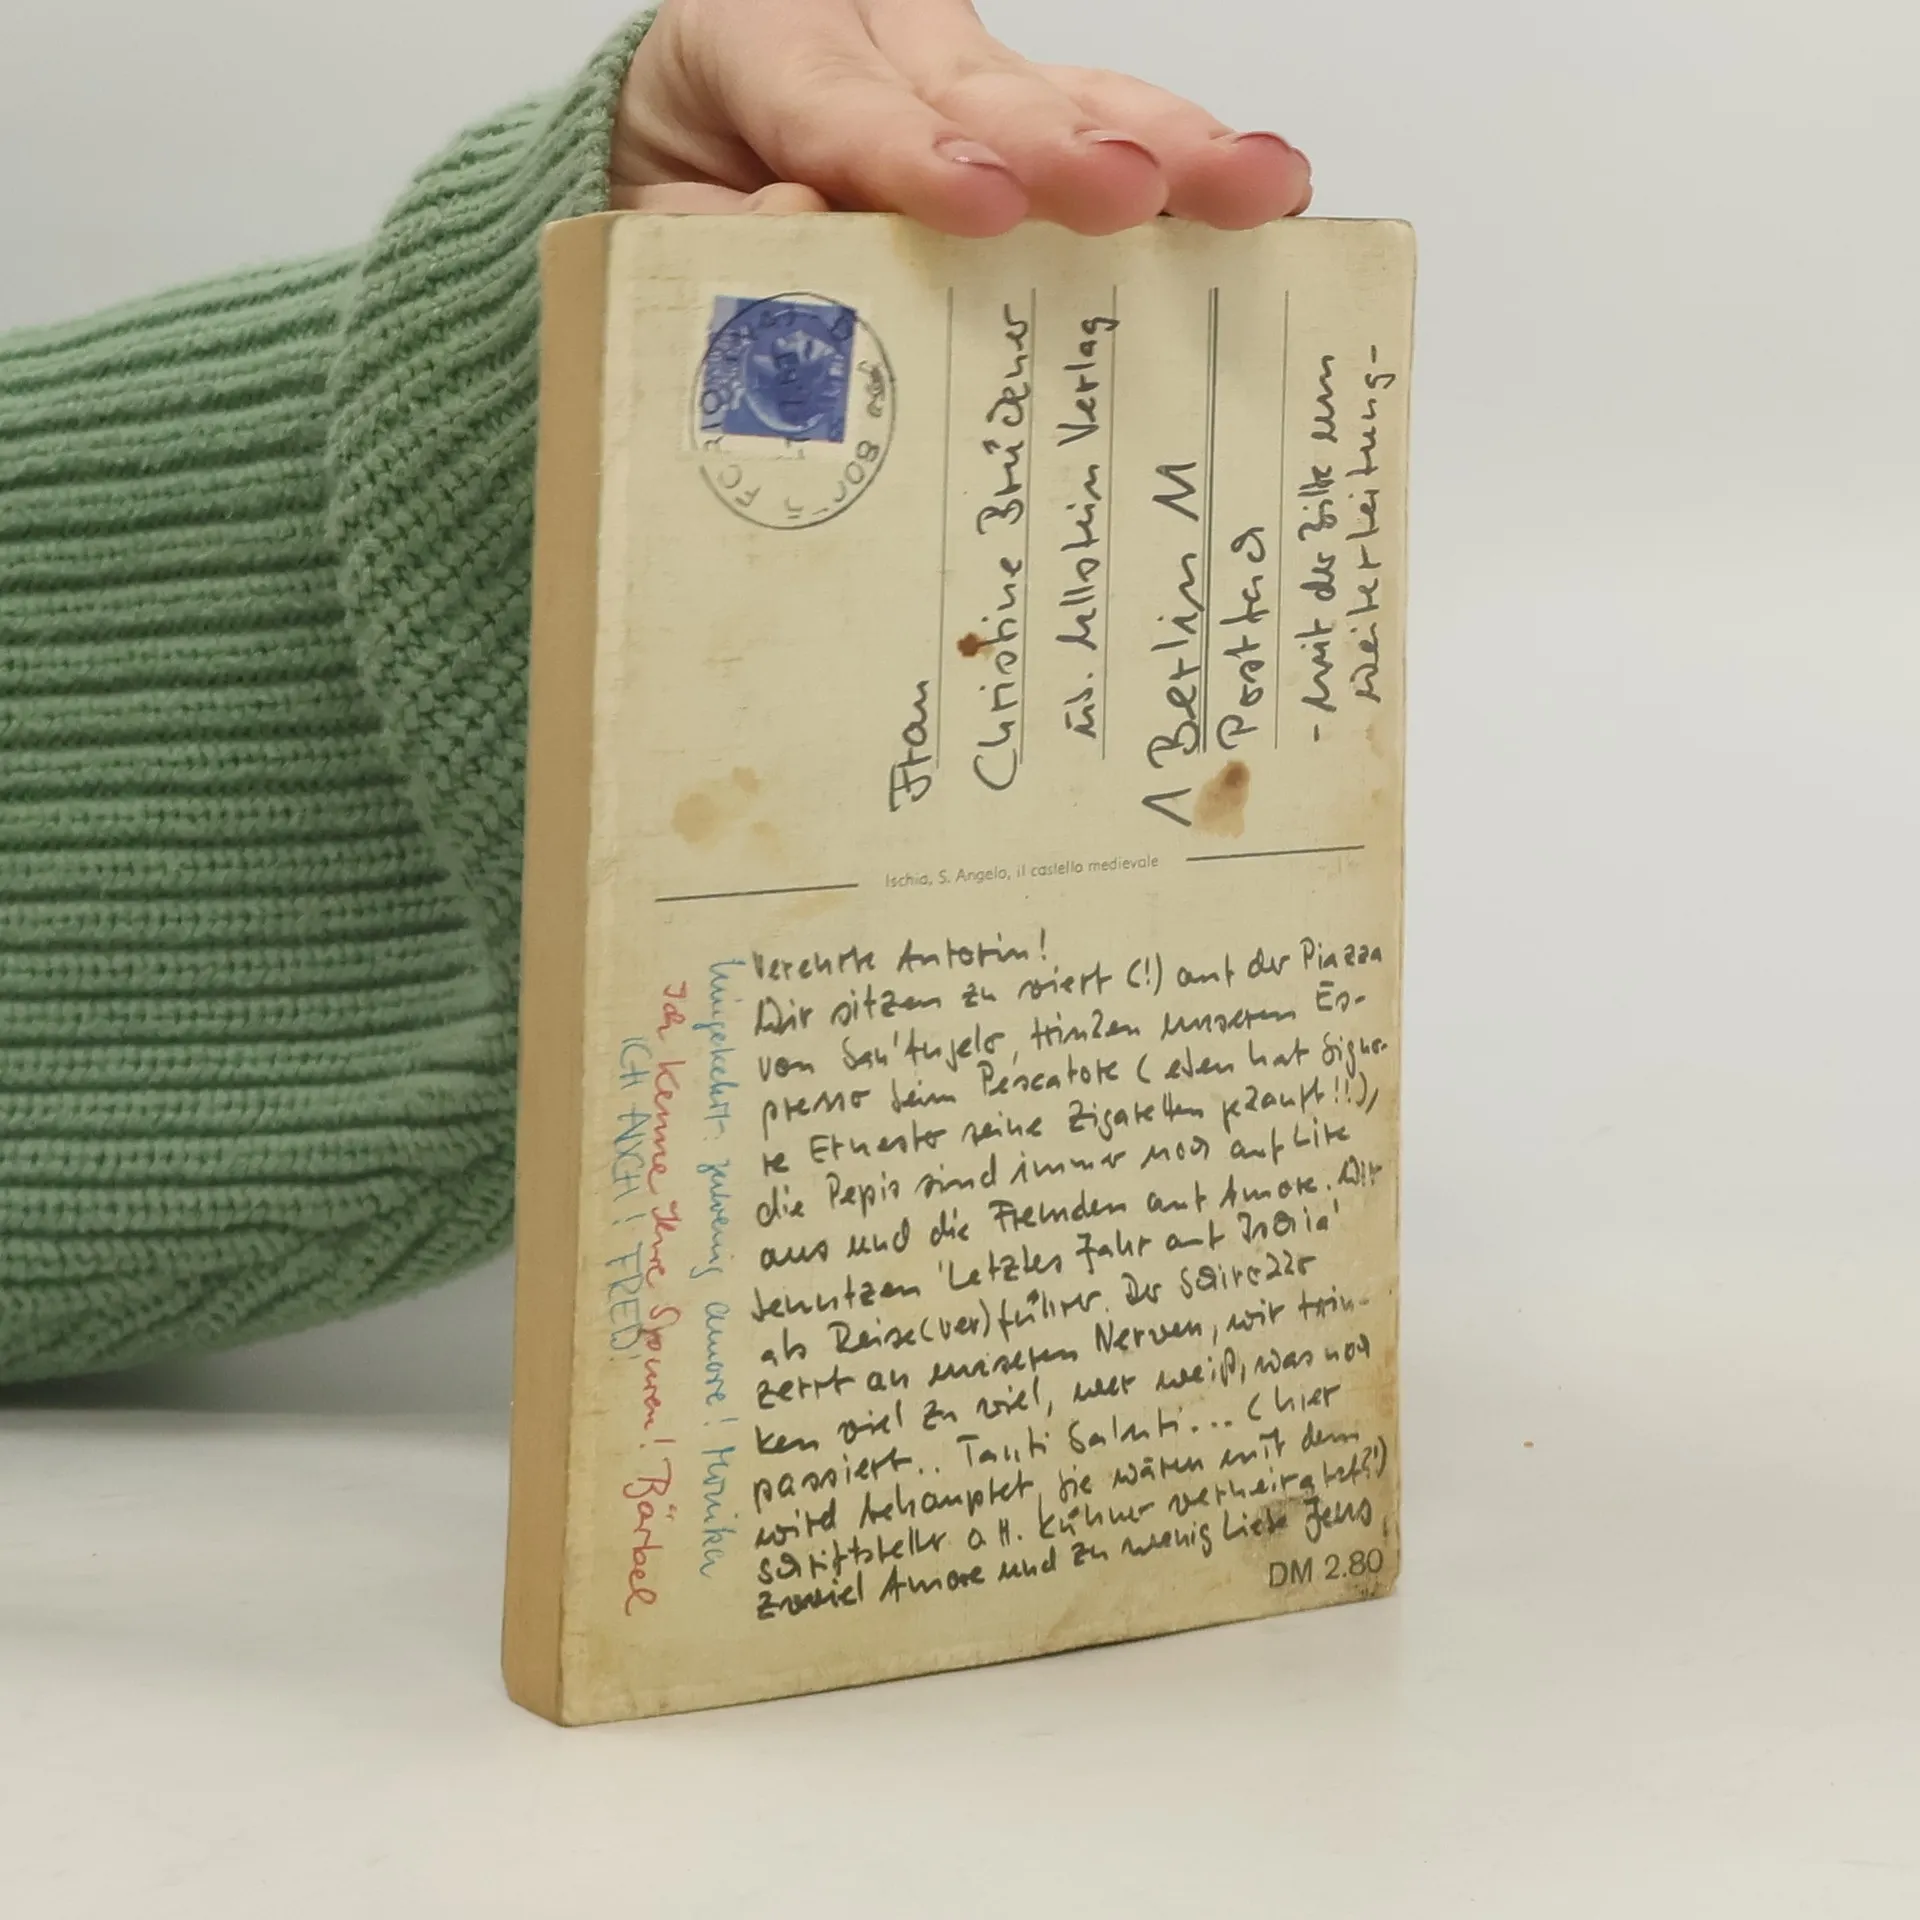 Frau
Christine Brückner
üb. Ullstein Verlag
1 Berlin 11
Postfach
- mit der Bitte um
Weiterleitung -
Ischia, S. Angelo, il castello medievale
Verehrte Autorin!
Wir sitzen zu viert (!) auf der Piazza
von San'Angelo, trinken unseren Es-
presso beim Pescatore (eben hat Signo-
re Ernesto seine Zigaretten gekauft!!),
die Pepis sind immer noch auf Lire
aus und die Fremden auf Amore. Wir
benutzen 'Letztes Jahr auf Ischia'
als Reise(ver)führer. Der Schirozzo
zerrt an unseren Nerven, wir trin-
ken viel zu viel, wer weiß, was noch
passiert.. Tanti Saluti... (hier
wird behauptet, Sie wären mit dem
Schriftsteller O.H. Kühner verheiratet?!)
Zuviel Amore und zu wenig Liebe Jens
Umgekehrt: zuwenig amore! Monika
Ich kenne Ihre Spuren! Bärbel
ICH AUCH! FRED!
DM 2.80